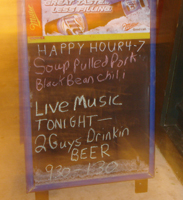 GREAT TASTE.
LESS FILLING.
HAPPY HOUR 4-7
Soup Pulled Pork
Black Bean Chili
LIVE MUSIC
TONIGHT—
2 Guys Drinkin
BEER
9:30-1:30